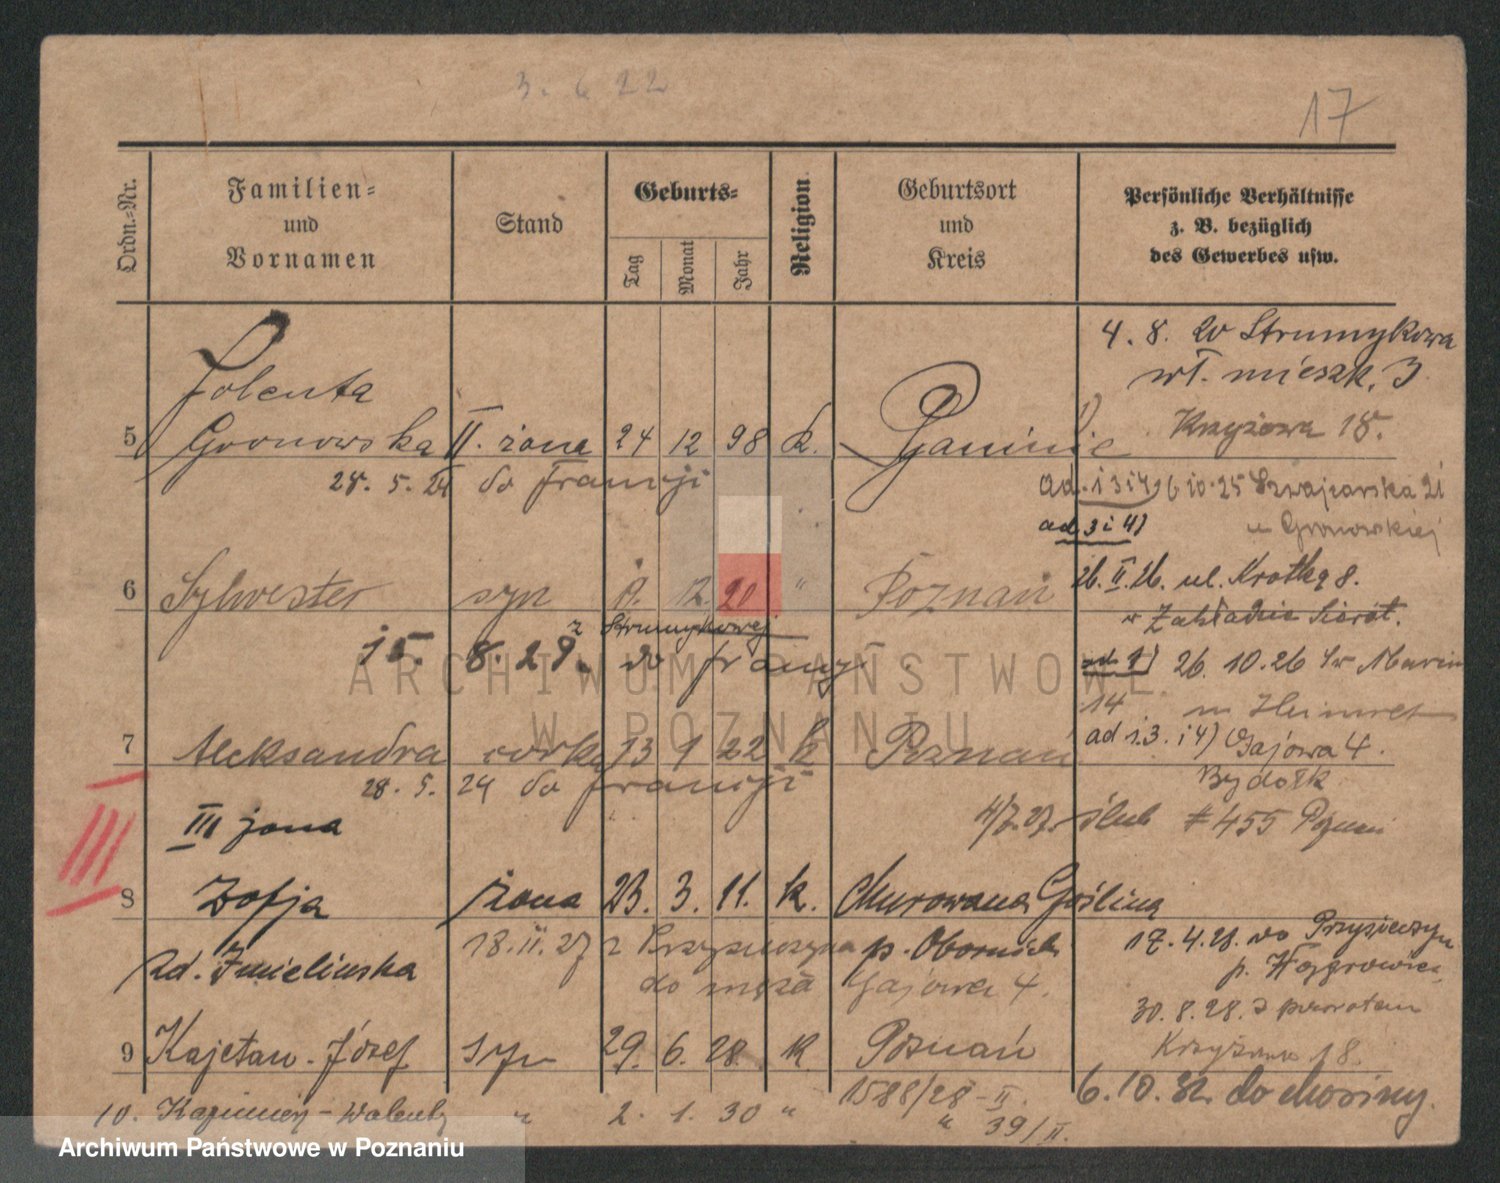 3. 6 22
17
Ordn.-Nr.
Familien-
und
Vornamen
Stand
Geburts-
Tag
Monat
Jahr
Religion
Geburtsort
und
Kreis
Persönliche Verhältnisse
z. B. bezüglich
des Gewerbes usw.
4. 8. 20 Strumykowa
wł. mieszk. 3
Jolenta
5 Gronowska II. żona 24 12 98 k.
Krzyżowa 18.
28. 5. 24 do Francji
ad. 1 3 i 4) 6 10.25 Szwajcarska 21
ad 3 i 4) u Gronowskiej
26. II. 26. ul. Krótka 8.
6 Sylwester syn 9. 12. 20 " Poznań
w Zakładzie Sierót.
15. 8. 29. z Strumykowej do Francji
ad 1) 26. 10. 26 Św Marcin
14
7 Aleksandra córka 13 1 22 k Poznań
ad 1. 3. i 4) Gajowa 4.
28. 5. 24 do Francji
III
III żona
4/7.27. ślub # 455 Poznań
8 Zofja żona 23. 3. 11. k. Murowana Goślina
18. II. 27 z p. Obornik
17. 4. 28. do
zd. Imielinska
do męża Gajowa 4.
p. Wągrowiec
30. 8. 28. z powrotem
9 Kajetan - Józef syn 29. 6. 28. k Poznań
Krzyżowa 18.
1588/28 - II.
6. 10. 32. do Chociszy.
10. Kazimierz - Walenty " 2. 1. 30 " " 39/II.
ARCHIWUM PAŃSTWOWE
W POZNANIU
Archiwum Państwowe w Poznaniu